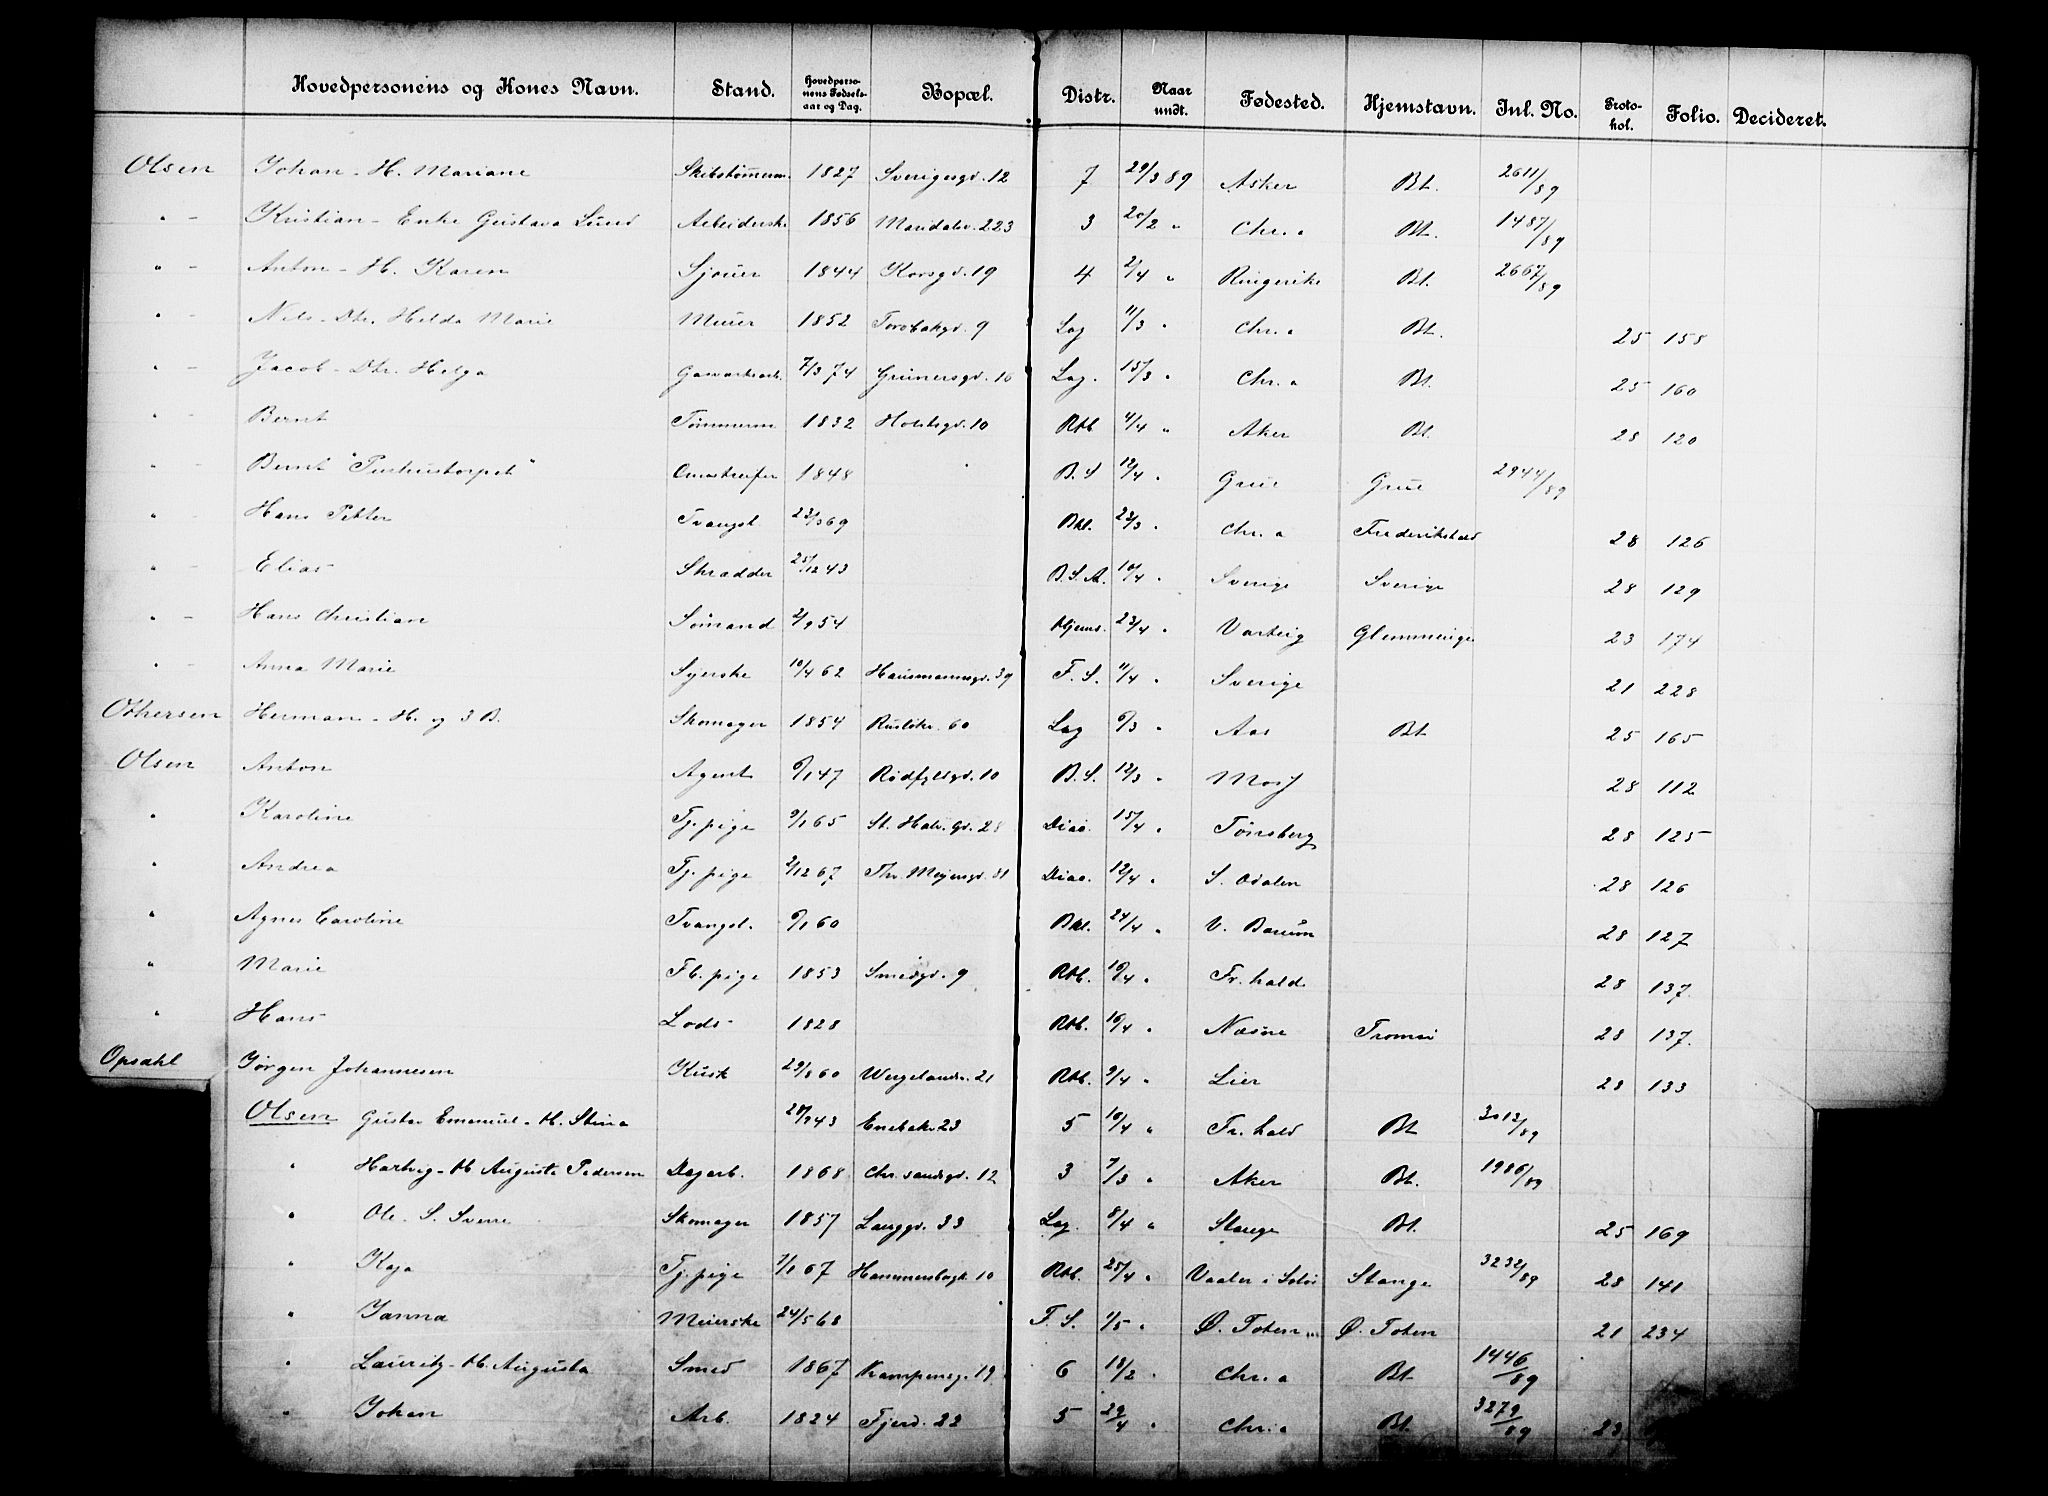 Hovedpersonens og Kones Navn. Stand. Hovedpersonens Fødselsaar og Dag. Bopæl. Distr. Naar undt. Fødested. Hjemstavn. Inl. No. Protokol. Folio. Decideret.
Olsen Johan - H. Mariane Skibstømmerm. 1827 Sverigesgd. 12 7 29/3 89 Asker Bt. 2611/89
" - Kristian - Enke Gustava Lund Arbeiderske 1856 Maridalsv. 223 3 20/2 " Chr.a Bt. 1487/89
" - Anton - H. Karen Sjouer 1844 Korsgd. 19 4 2/4 " Ringerike Bt. 2667/89
" - Nils - Dtr. Hilda Marie Murer 1852 Torvbakgd. 9 Lag 11/3 " Chr.a Bt. 25 158
" - Jacob - Dtr. Helga Gasværksarb. 7/3 74 Grünersgd. 16 Lag. 15/3 " Chr.a Bt. 25 160
" - Bernt Tømmerm 1832 Holstsgd. 10 Rtb 4/4 " Aker Bt. 28 120
" - Bernt Omstreifer 1848 B.S 12/4 " Grue Grue 2944/89
" - Hans Petter Tvangsl. 23/3 69 Bkl. 23/3 " Chr.a Frederikstad 28 126
" - Elias Skrædder 25/12 43 B.S.A. 10/4 " Sverige Sverige 28 129
" - Hans Christian Sømand 2/9 54 Hjems. 23/4 " Varteig Glemminge 23 174
" - Anna Marie Syerske 10/4 62 Hausmannsgd. 39 F.S. 11/4 " Sverige 21 228
Othersen Herman - H. og 3 B. Skomager 1854 Ruslökv. 60 Lag 6/3 " Aas Bt 25 165
Olsen Anton Agent 6/1 47 Rødfyldgd. 10 B.S. 12/3 " Moss 28 112
" Karoline Tj. pige 9/1 65 St. Halv. Gd. 28 Diac. 15/4 " Tønsberg 28 125
" Andrea Tj. pige 2/12 67 Thv. Meyersgd. 31 Diac. 12/4 " S. Odalen 28 126
" Agnes Caroline Tvangsl. 6/1 60 Bkl. 24/4 " V. Bærum 28 127
" Marie Fb. pige 1853 Smedgd. 9 Rtb. 10/4 " Fr. hald 28 137.
" Hans Lods 1828 Rtb. 10/4 " Næsne Tromsö 28 137.
Opsahl Jørgen Johannesen Kusk 29/8 60 Wergelandsv. 21 Rtb. 9/4 " Lier 28 133
Olsen Gustav Emanuel - H. Stina 43 Enebakv 23 5 10/4 " Fr. hald Bt 3012/89
" Hartvig - H Augusta Pedersen Dagarb. 1868 Chr. sandsgd. 12 3 7/3 " Aker Bt. 1986/89
" Ole - S. Sverre Skomager 1857 Langgd. 33 Lag. 8/4 " Stange Bt. 25 169
" Kaja Tj. pige 7/1 67 Hammersbogt 10 Rtb. 25/4 " Vaaler i Solør Stange 3232/89 28 141
" Janna Meierske 24/5 68 F.S. 1/5 " Ø. Toten Ø. Toten 21 234
" Lauritz - H. Augusta Smed 1867 Kampensg. 19 6 18/2 " Chr.a Bt 1446/89
" Johan Arb. 1824 Fjerd. 22 5 29/4 " Chr.a Bt. 3279/89 23